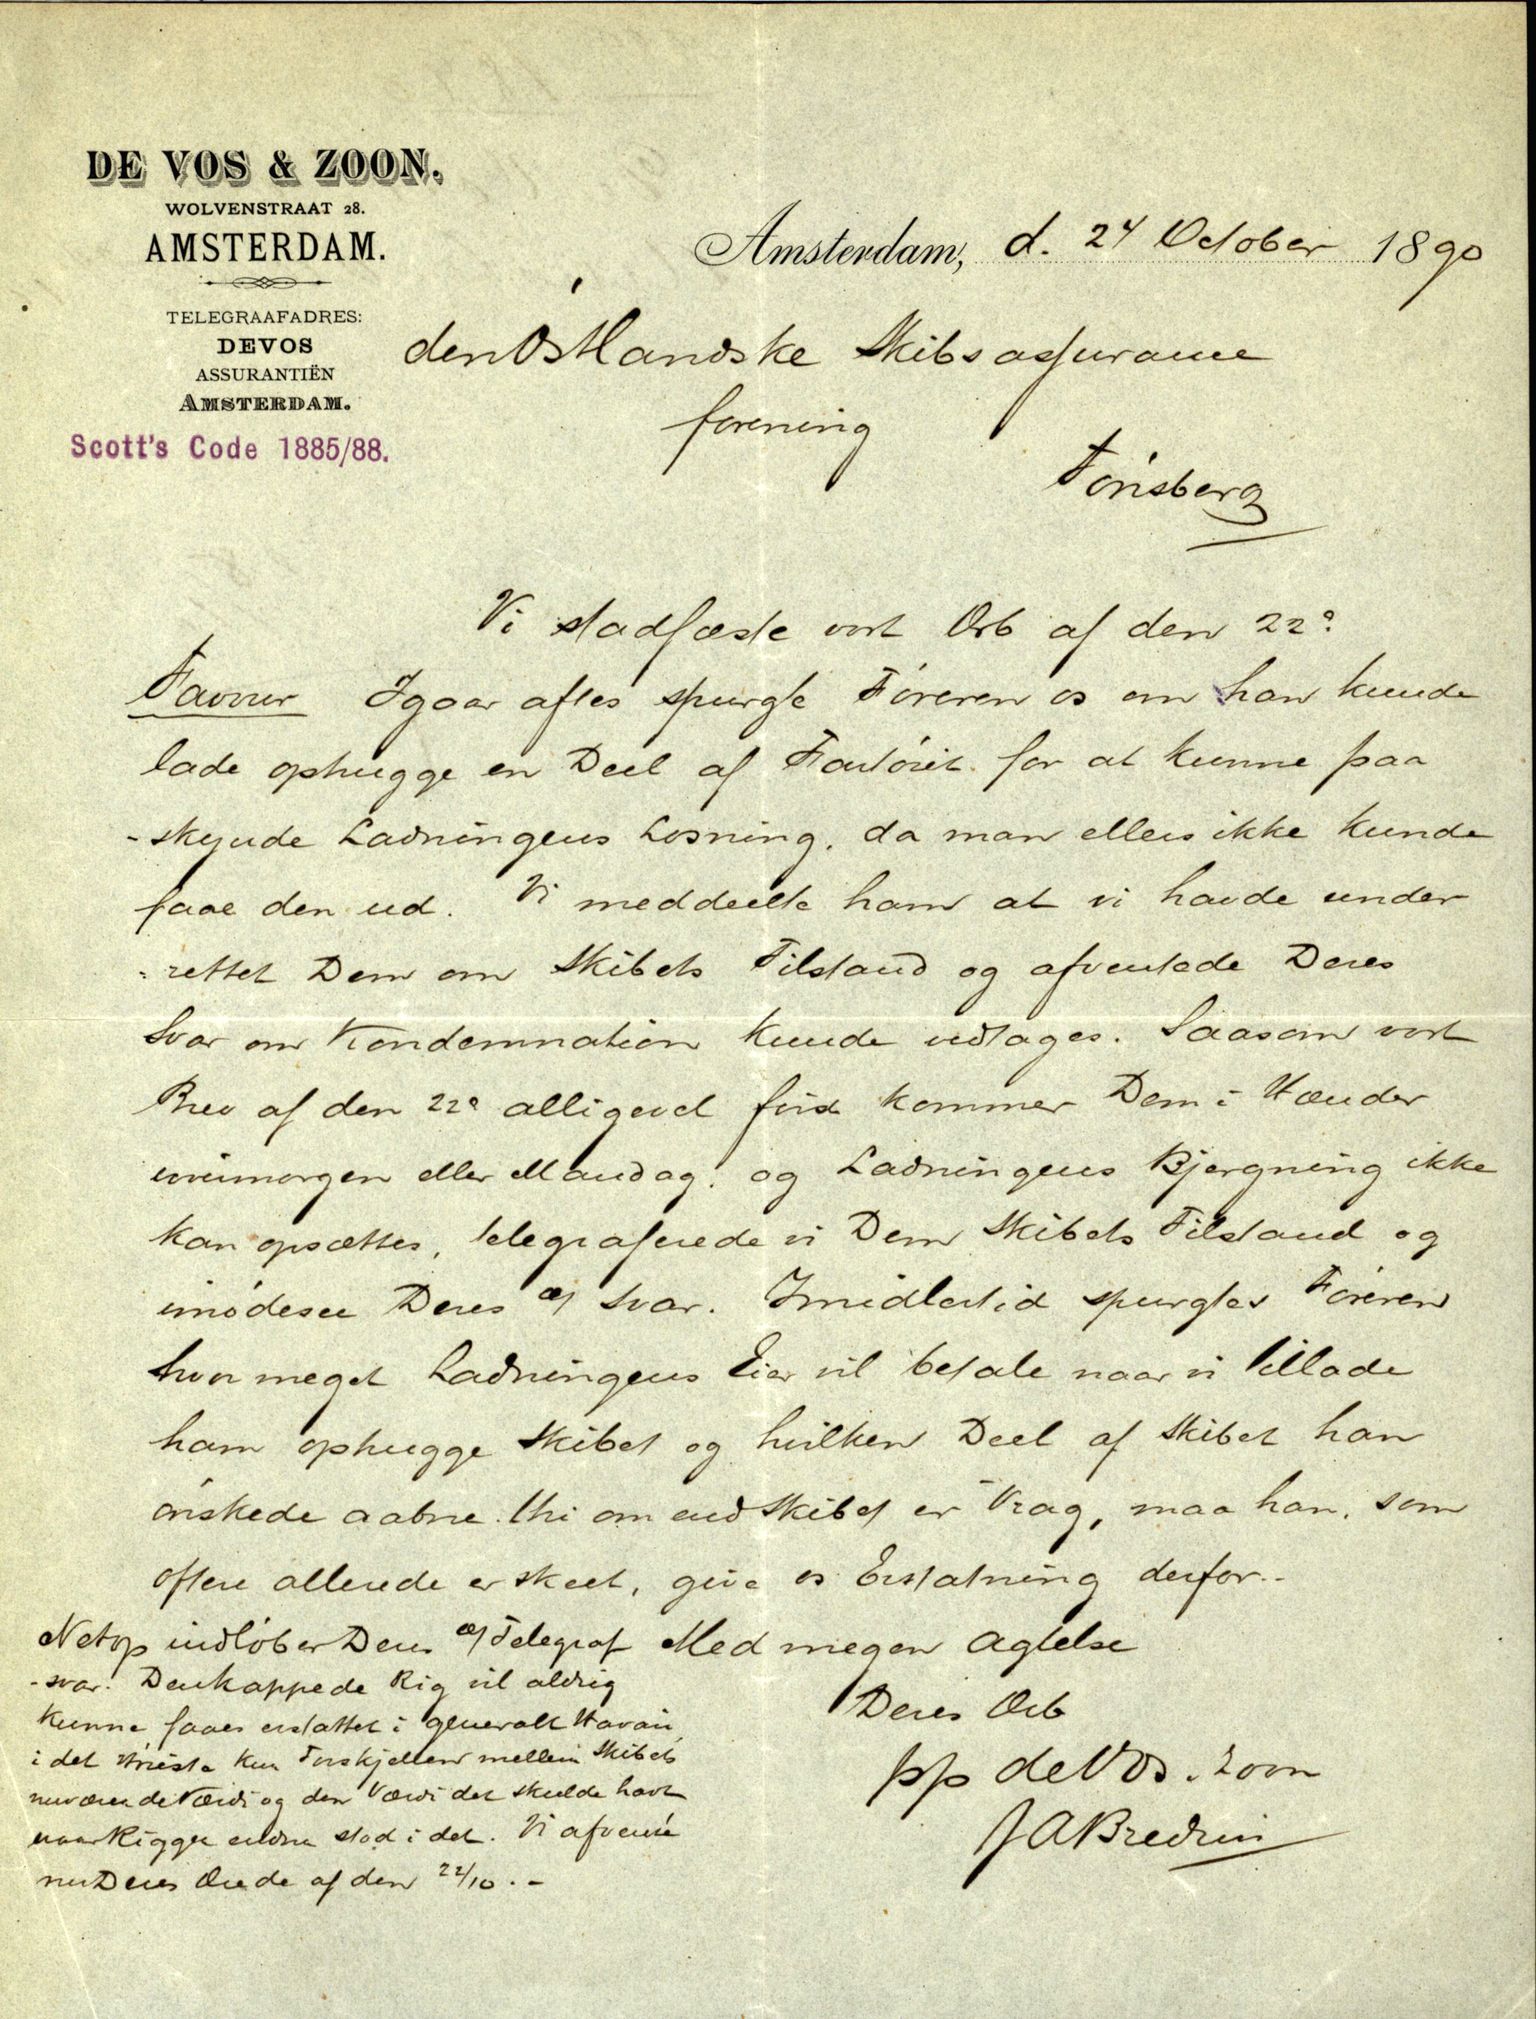 DE VOS & ZOON.
WOLVENSTRAAT 28.
AMSTERDAM.
TELEGRAAFADRES:
DEVOS
ASSURANTIËN
AMSTERDAM.
Scott's Code 1885/88.
Amsterdam, d. 24 October 1890
den Östlandske Skibsassurance
forening
Tönsberg
Vi stadfæste vort Ærb af den 22º
Favour Igaar aftes spurgte Föreren os om han kunde
lade ophugge en Deel af Fartöiet for at kunne paa
-skynde Ladningens Losning, da man ellers ikke kunde
faae den ud. Vi meddeelte ham at vi havde under
-rettet Dem om Skibets Tilstand og afventede Deres
Svar om Kondemnation kunde udtages. Saasom vort
Brev af den 22º alligevel först kommer Dem i Hænder
overmorgen eller Mandag, og Ladningens Bjergning ikke
kan opsættes, telegraferede vi Dem Skibets Tilstand og
imödesee Deres æ/ Svar. Imidlertid spurgtes Föreren
hvor meget Ladningens Eier vil betale naar vi tillade
ham ophugge Skibet og hvilken Deel af Skibet han
önskede aabne. thi om end Skibet er Vrag, maa han, som
oftere allerede er skeet, give os Erstatning derfor.-
Med megen Agtelse
Deres Ærb
pp de Vos & Zoon
Netop indlöber Deres æ/ Telegraf
-svar. Den kappede Rig vil aldrig
kunne faaes erstattet i generalt Havari,
i det kun Forskjellen mellem Skibets
nuværende Værdi og den Værdi det skulde havt
naar Riggen endnu stod i det. Vi afvente
nu Deres Ærede af den 22/10.-